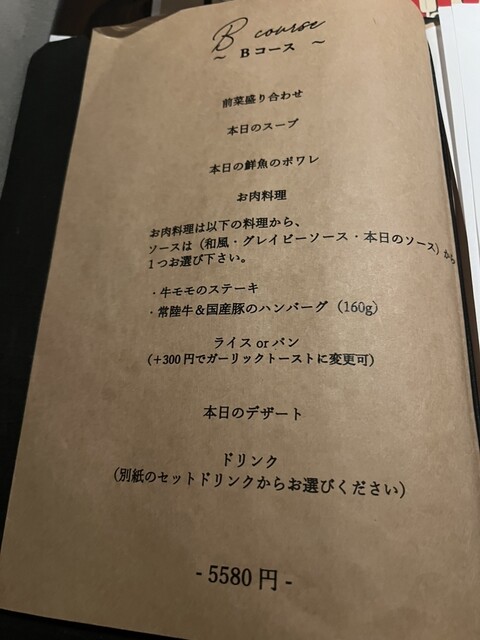 B course
～ Bコース ～
前菜盛り合わせ
本日のスープ
本日の鮮魚のポワレ
お肉料理
お肉料理は以下の料理から、
ソースは（和風・グレイビーソース・本日のソース）から
１つお選び下さい。
・牛モモのステーキ
・常陸牛＆国産豚のハンバーグ（160g）
ライス or パン
（＋300円でガーリックトーストに変更可）
本日のデザート
ドリンク
（別紙のセットドリンクからお選びください）
- 5580 円 -